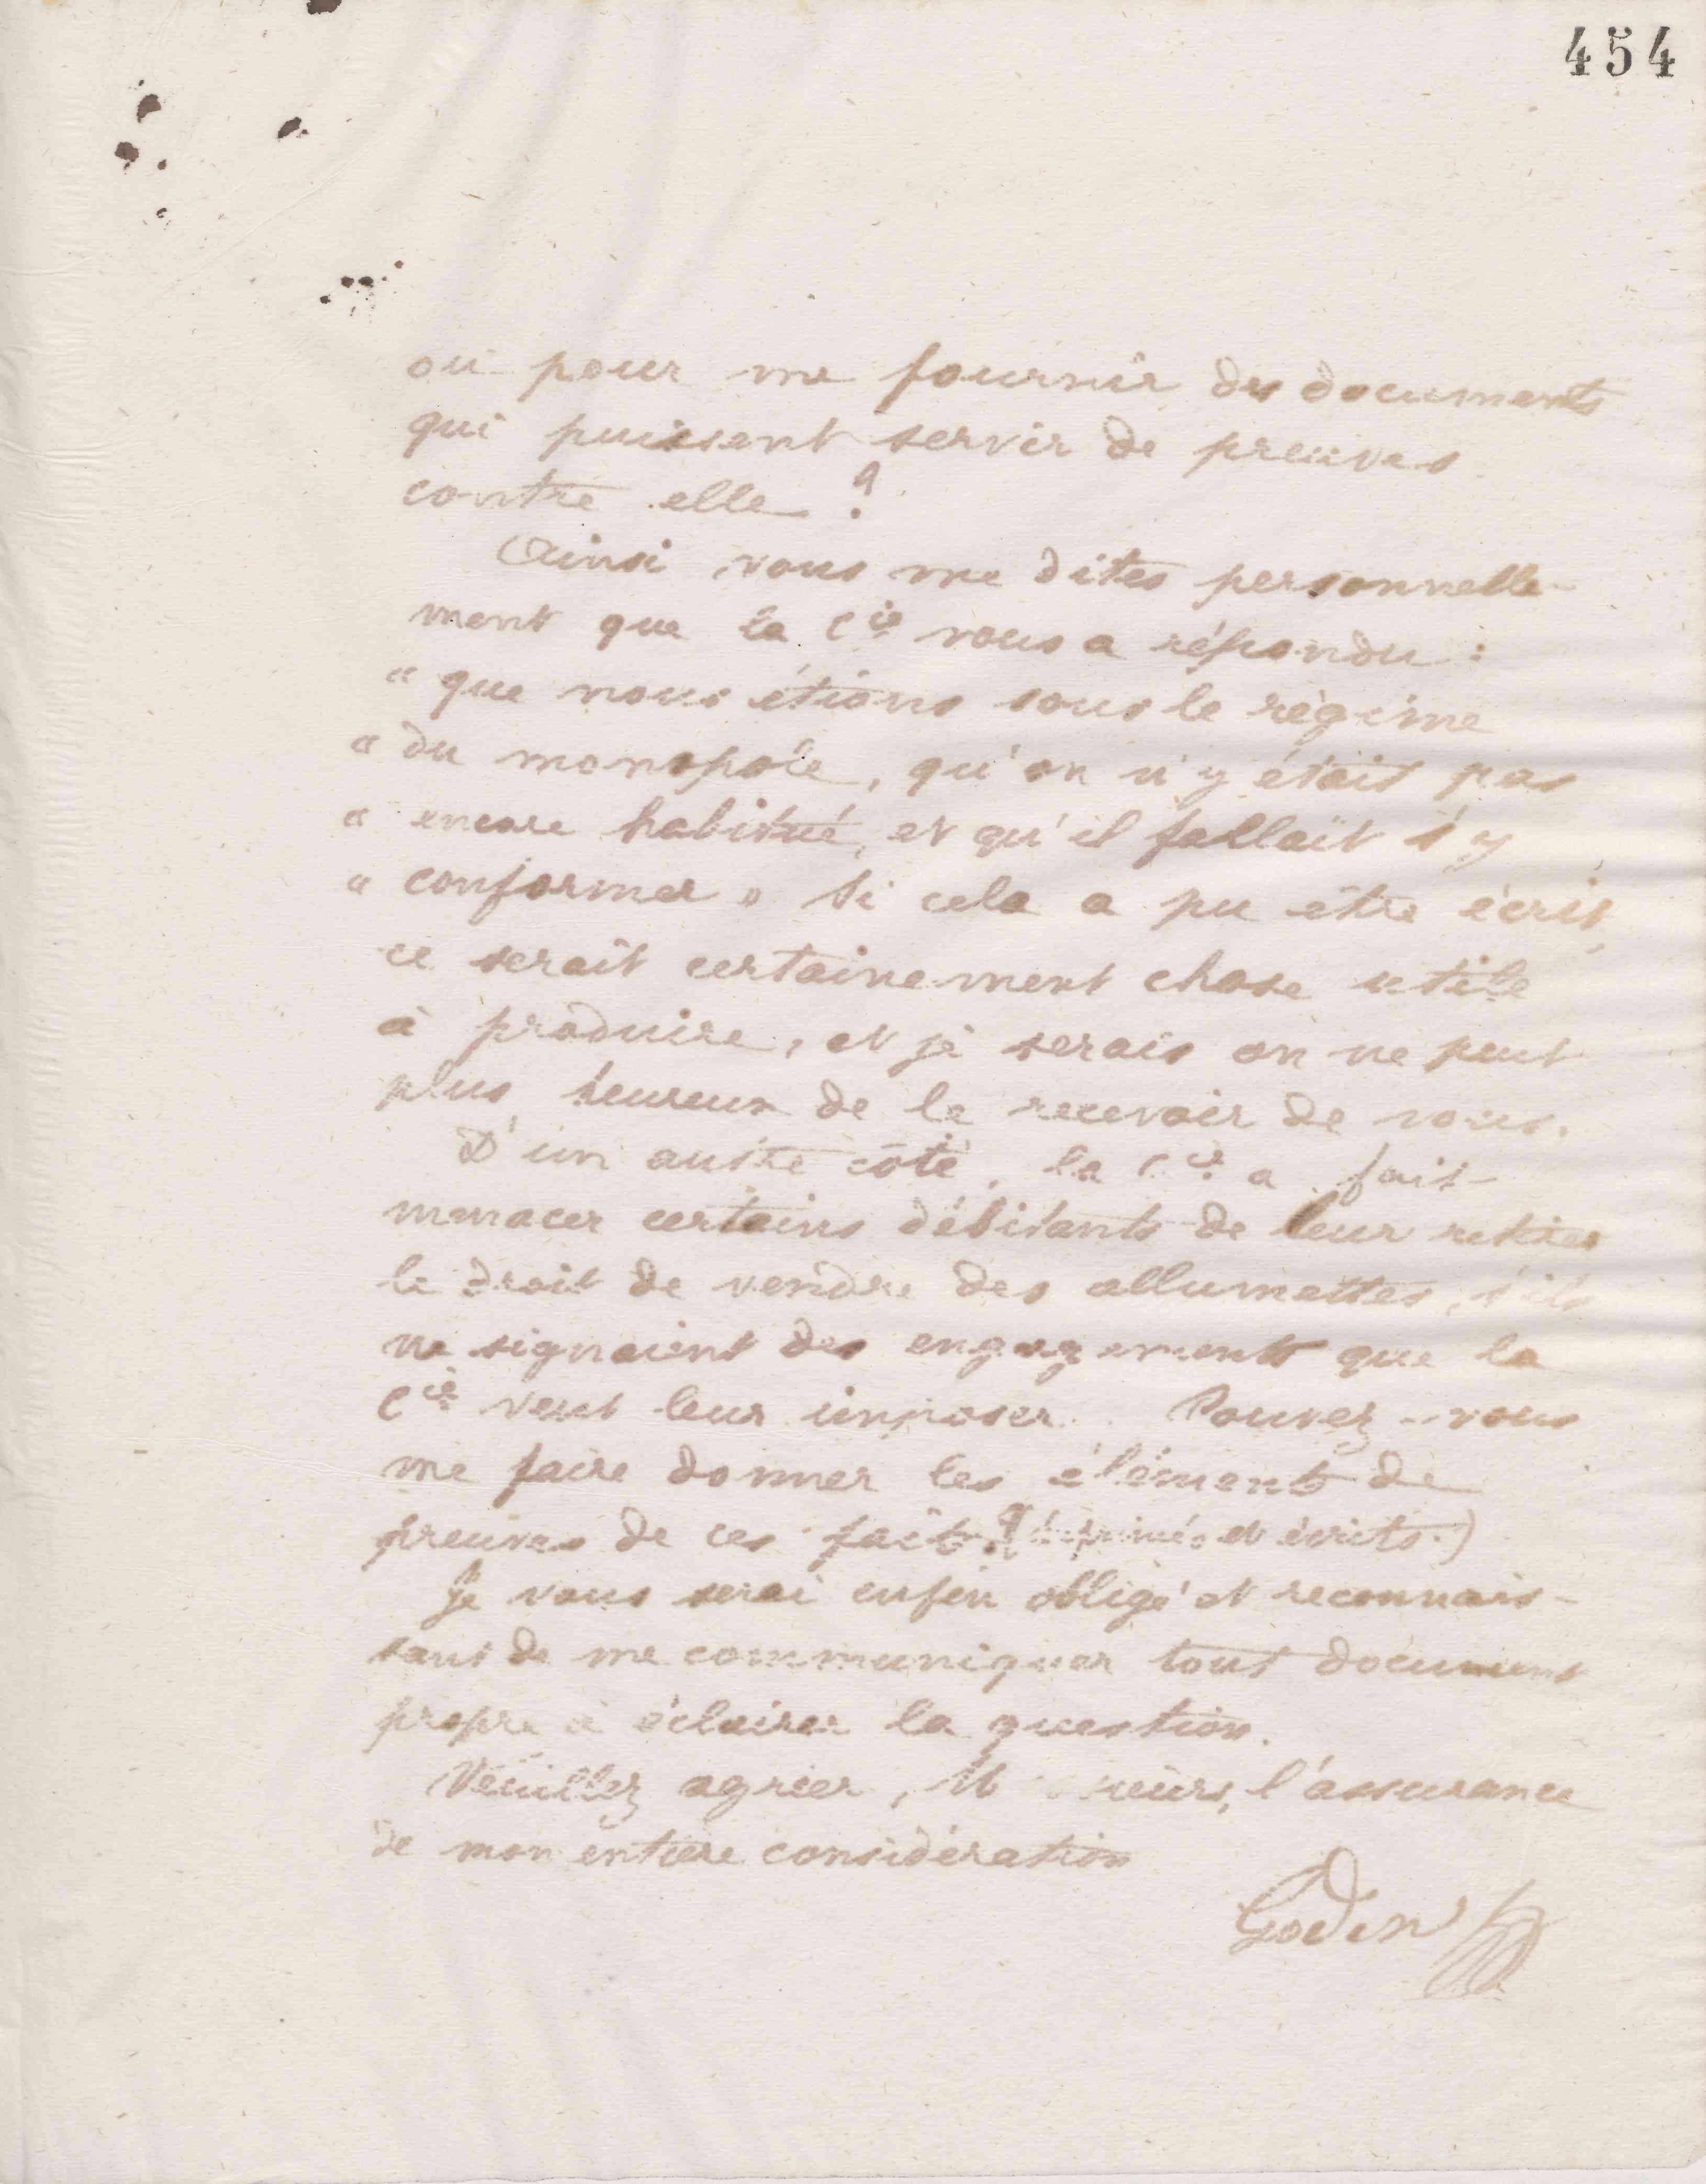 454
ou pour me fournir des documents
qui puissent servir de preuves
contre elle ?
Ainsi vous me dites personnelle-
ment que la Cie vous a répondu :
" que nous étions sous le régime
" du monopole, qu'on n'y était pas
" encore habitué, et qu'il fallait s'y
" conformer " Si cela a pu être écrit,
ce serait certainement chose utile
à produire, et je serais on ne peut
plus heureux de le recevoir de vous.
D'un autre côté, la Cie a fait
menacer certains débitants de leur retirer
le droit de vendre des allumettes, s'ils
ne signaient des engagements que la
Cie veut leur imposer. Pouvez-vous
me faire donner les éléments de
preuves de ces faits ? (imprimés et écrits.)
Je vous serai enfin obligé et reconnais-
sant de me communiquer tout document
propre à éclairer la question.
Veuillez agréer, Messieurs, l'assurance
de mon entière considération
Godin